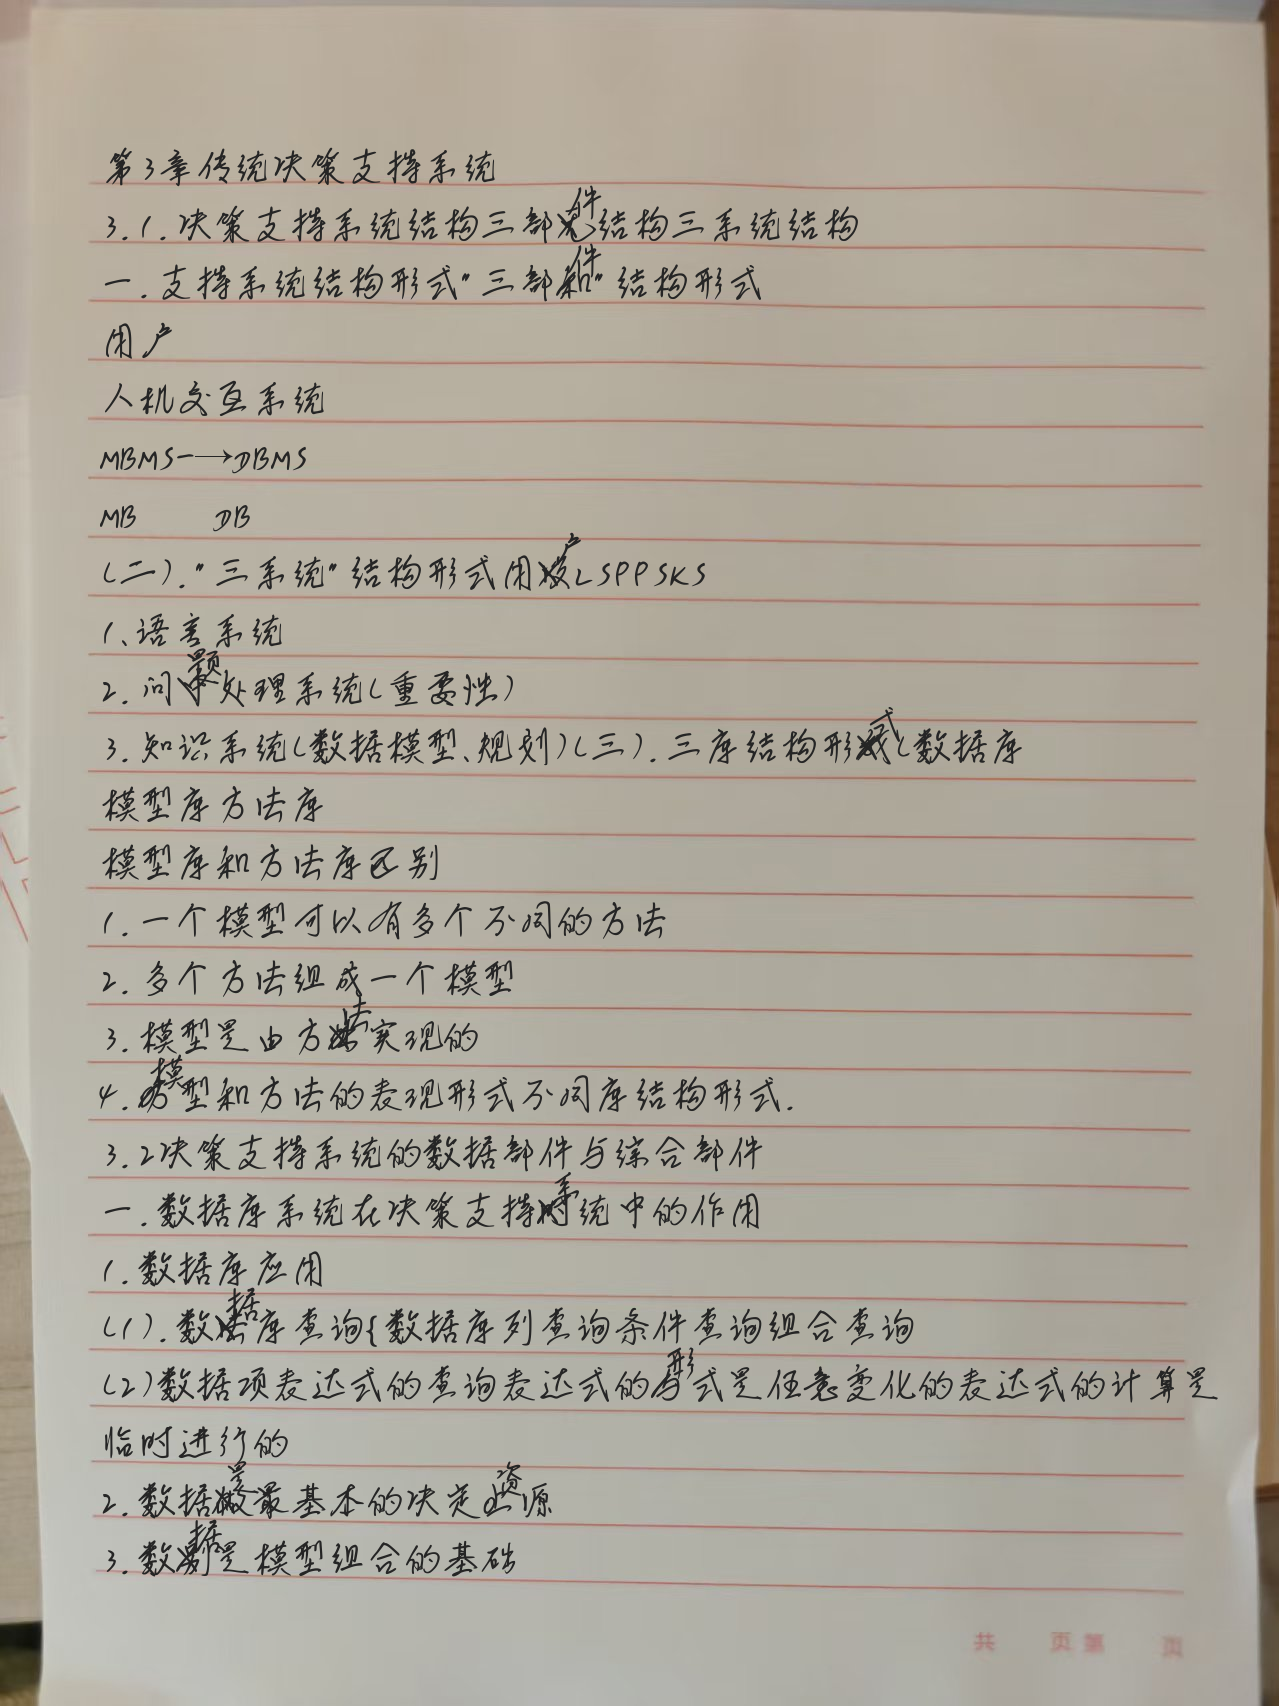 第3章传统决策支持系统
3.1.决策支持系统结构三部件结构三系统结构
一.支持系统结构形式"三部件"结构形式
用户
人机交互系统
MBMS一→DBMS
MB DB
(二)."三系统"结构形式用户LSPPSKS
1、语言系统
2.问题处理系统(重要性)
3.知识系统(数据模型、规划)(三).三库结构形式(数据库
模型库方法库
模型库和方法库区别
1.一个模型可以有多个不同的方法
2.多个方法组成一个模型
3.模型是由方法实现的
4.模型和方法的表现形式不同库结构形式.
3.2决策支持系统的数据部件与综合部件
一.数据库系统在决策支持系统中的作用
1.数据库应用
(1).数据库查询{数据库列查询条件查询组合查询
(2)数据项表达式的查询表达式的形式是任意变化的表达式的计算是
临时进行的
2.数据是最基本的决定资源
3.数据是模型组合的基础
共 页 第 页